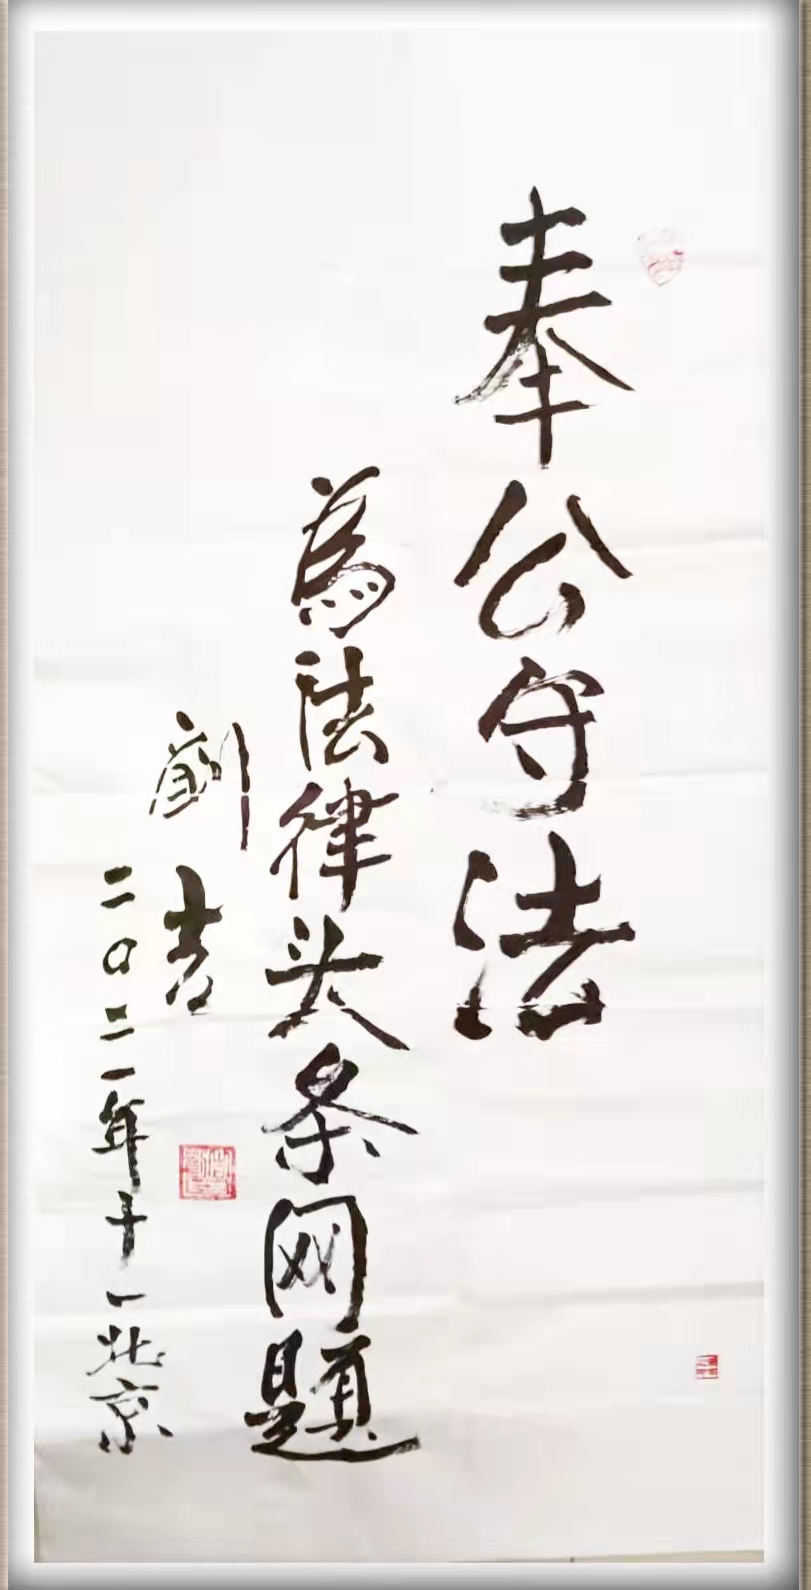 奉公守法
為法律头条网题
劉吉
二〇二一年十一北京